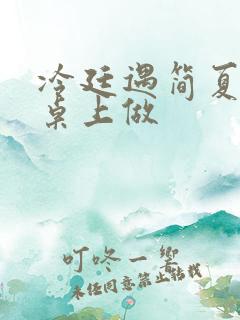 冷廷遇简夏
桌上做
叮咚一响
未经同意禁止转载